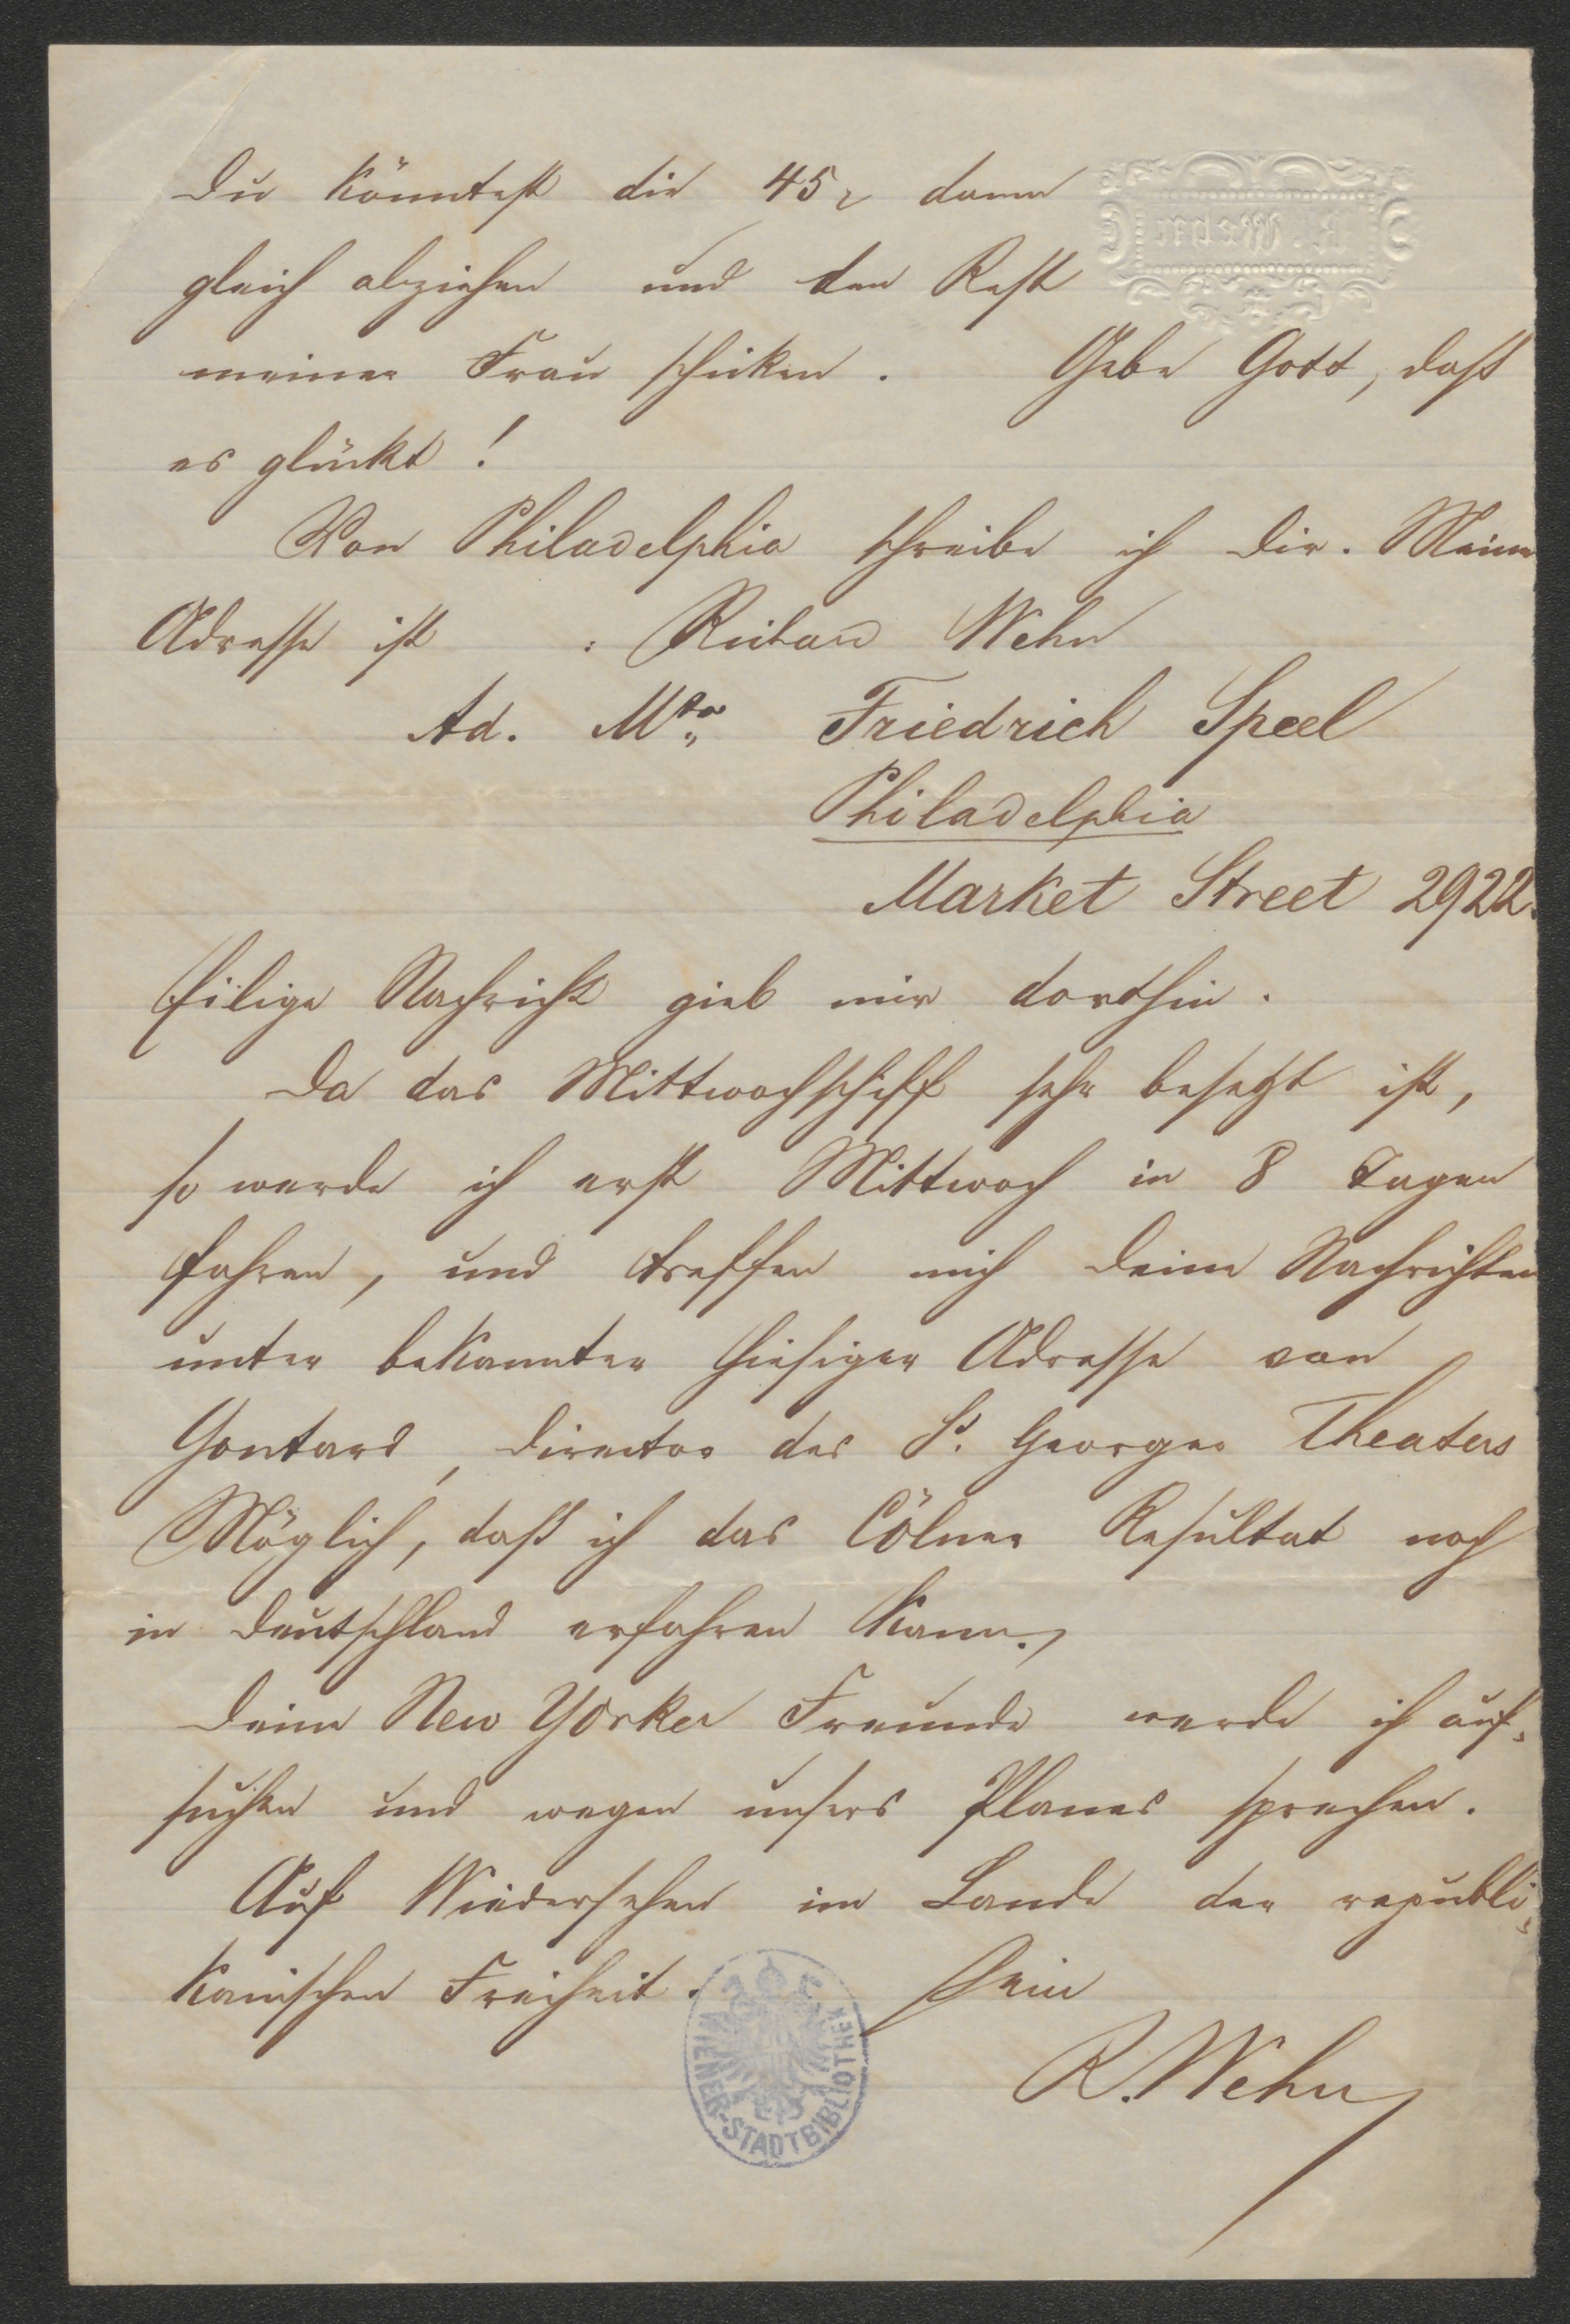 Du könntest die 45 r dann
gleich abziehen und den Rest
meiner Frau schicken. Gebe Gott, daß
es glückt!
Von Philadelphia schreibe ich Dir. Meine
Adresse ist : Richard Wehn
Ad. Mstr Friedrich Speel
Philadelphia
Market Street 2922.
Eilige Nachricht gieb mir dorthin.
Da das Mittwochschiff sehr besetzt ist,
so werde ich erst Mittwoch in 8 Tagen
fahren, und treffen mich Deine Nachrichten
unter bekannter hiesiger Adresse von
Gontard, Director des St. Georger Theaters
Möglich, daß ich das Cölner Resultat noch
in Deutschland erfahren kann.
Deine New Yorker Freunde werde ich auf-
suchen und wegen unsers Planes sprechen.
Auf Wiedersehen im Lande der republi-
kanischen Freiheit. Dein
R. Wehn
WIENER-STADTBIBLIOTHEK
R. Wehn